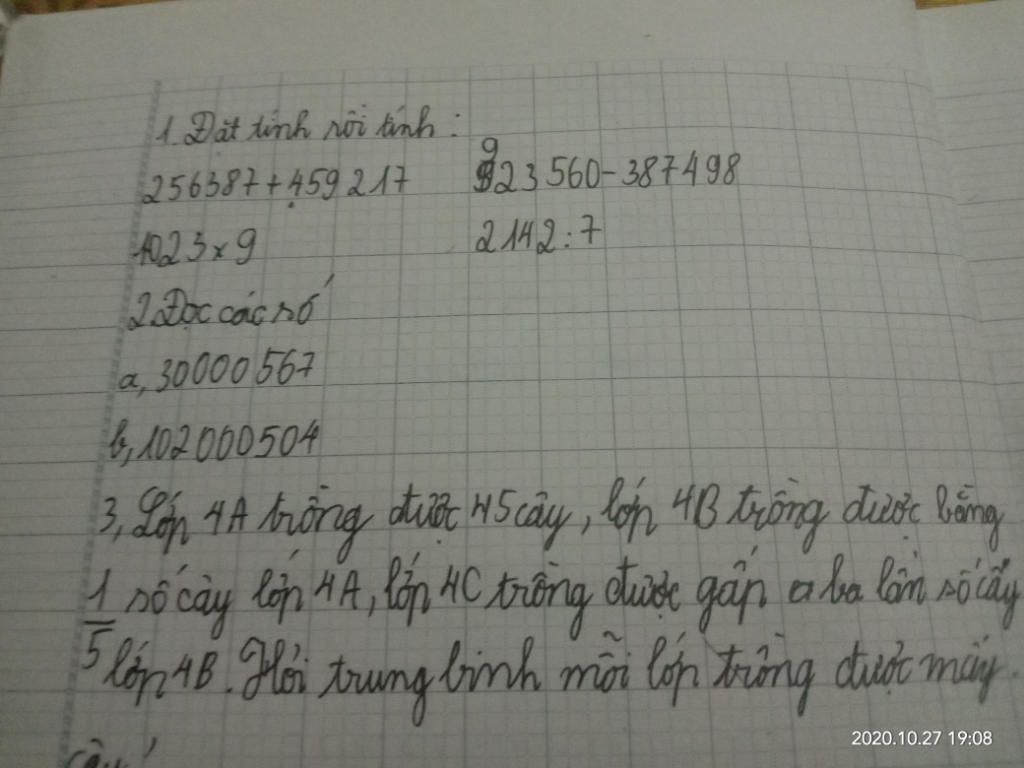 1. Đặt tính rồi tính:
256387 + 459217 923560 - 387498
1023 x 9 2142 : 7
2. Đọc các số
a, 30000567
b, 102000504
3, Lớp 4A trồng được 45 cây, lớp 4B trồng được bằng
1/5 số cây lớp 4A, lớp 4C trồng được gấp ba lần số cây
lớp 4B. Hỏi trung bình mỗi lớp trồng được mấy
cây
2020.10.27 19:08